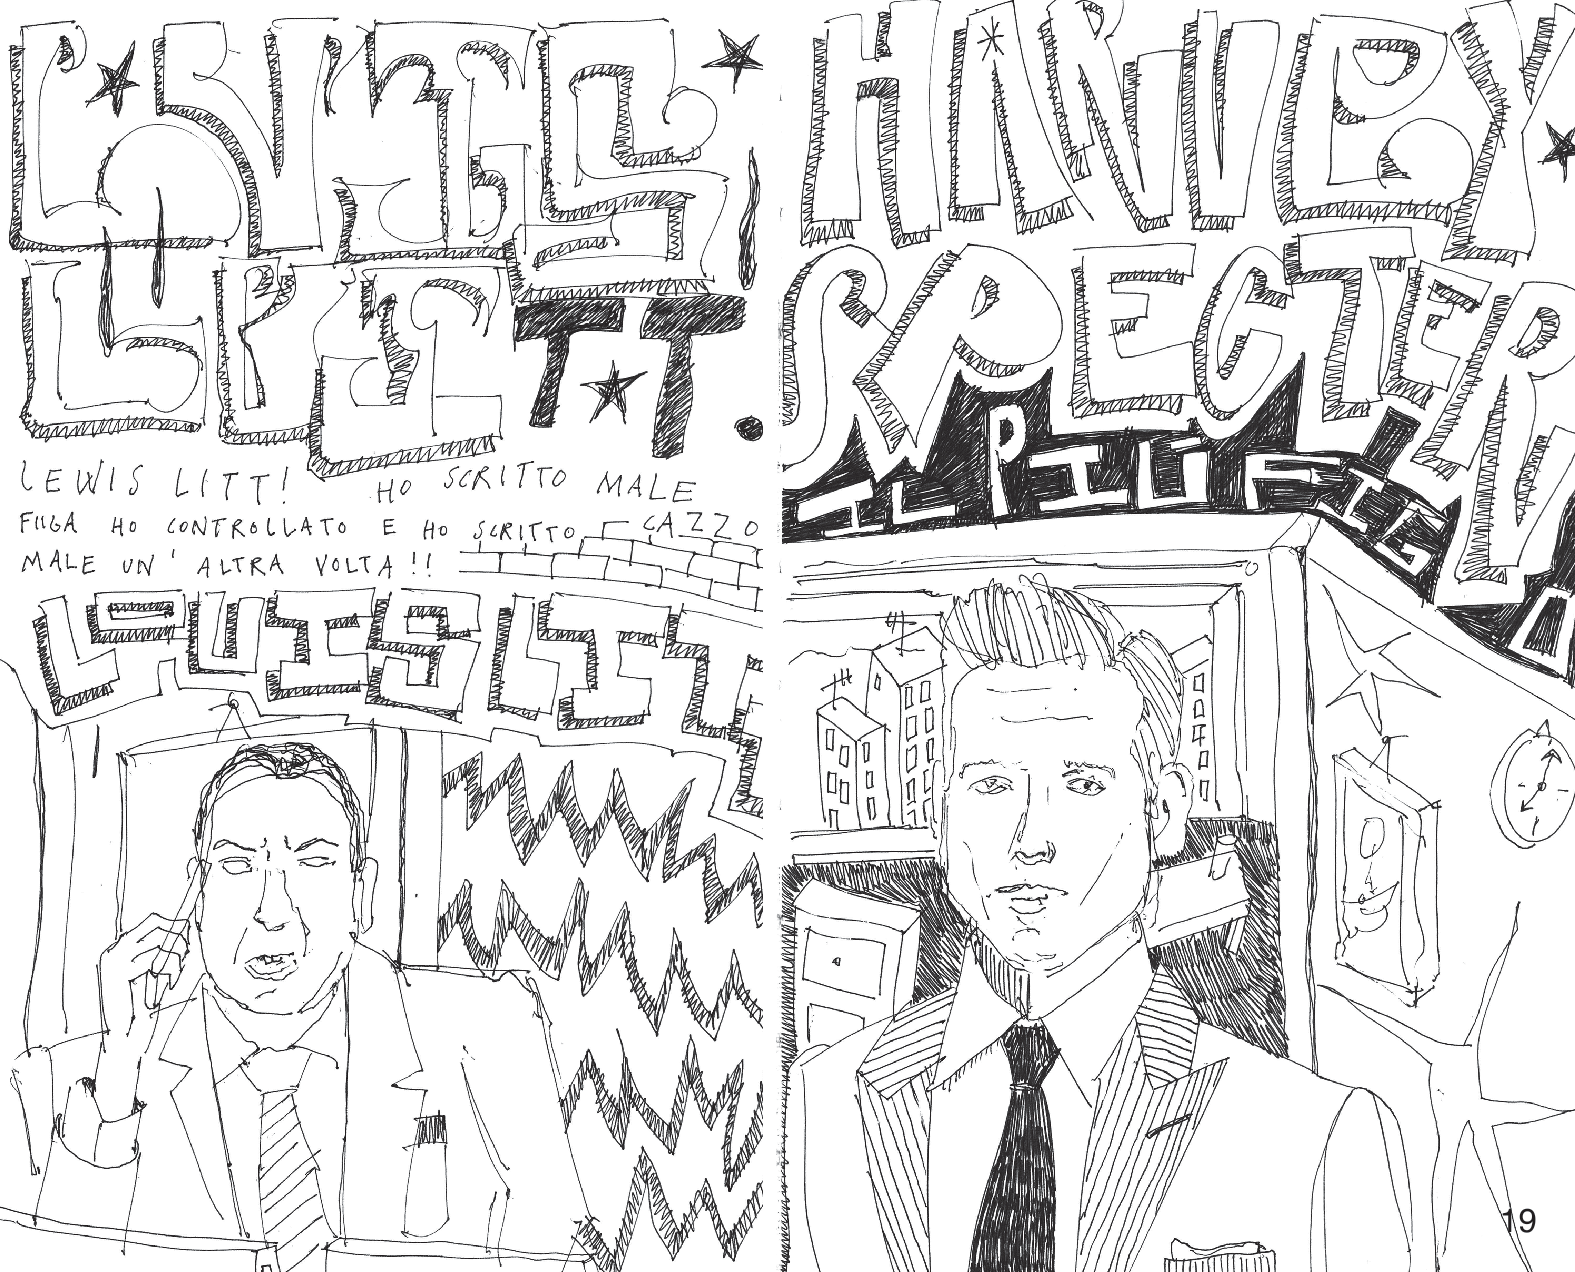 LEWIS LITT! HO SCRITTO MALE
FIIGA HO CONTROLLATO E HO SCRITTO CAZZO
MALE UN' ALTRA VOLTA!!
LOUIS LITT
HARVEY
SPECTER
IL PIU FIG
19